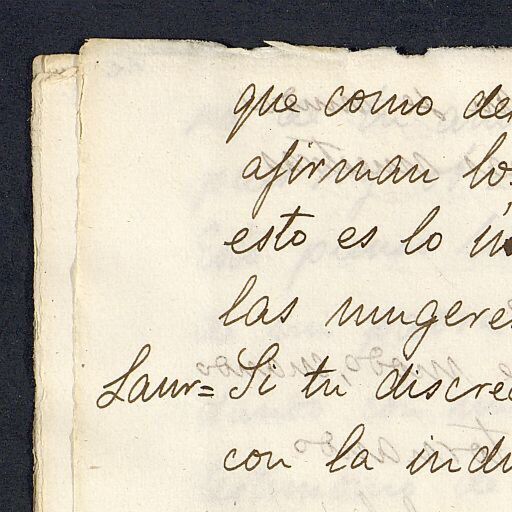 que como de
afirman lo
esto es lo
las mugere
Laur= Si tu discre
con la indu